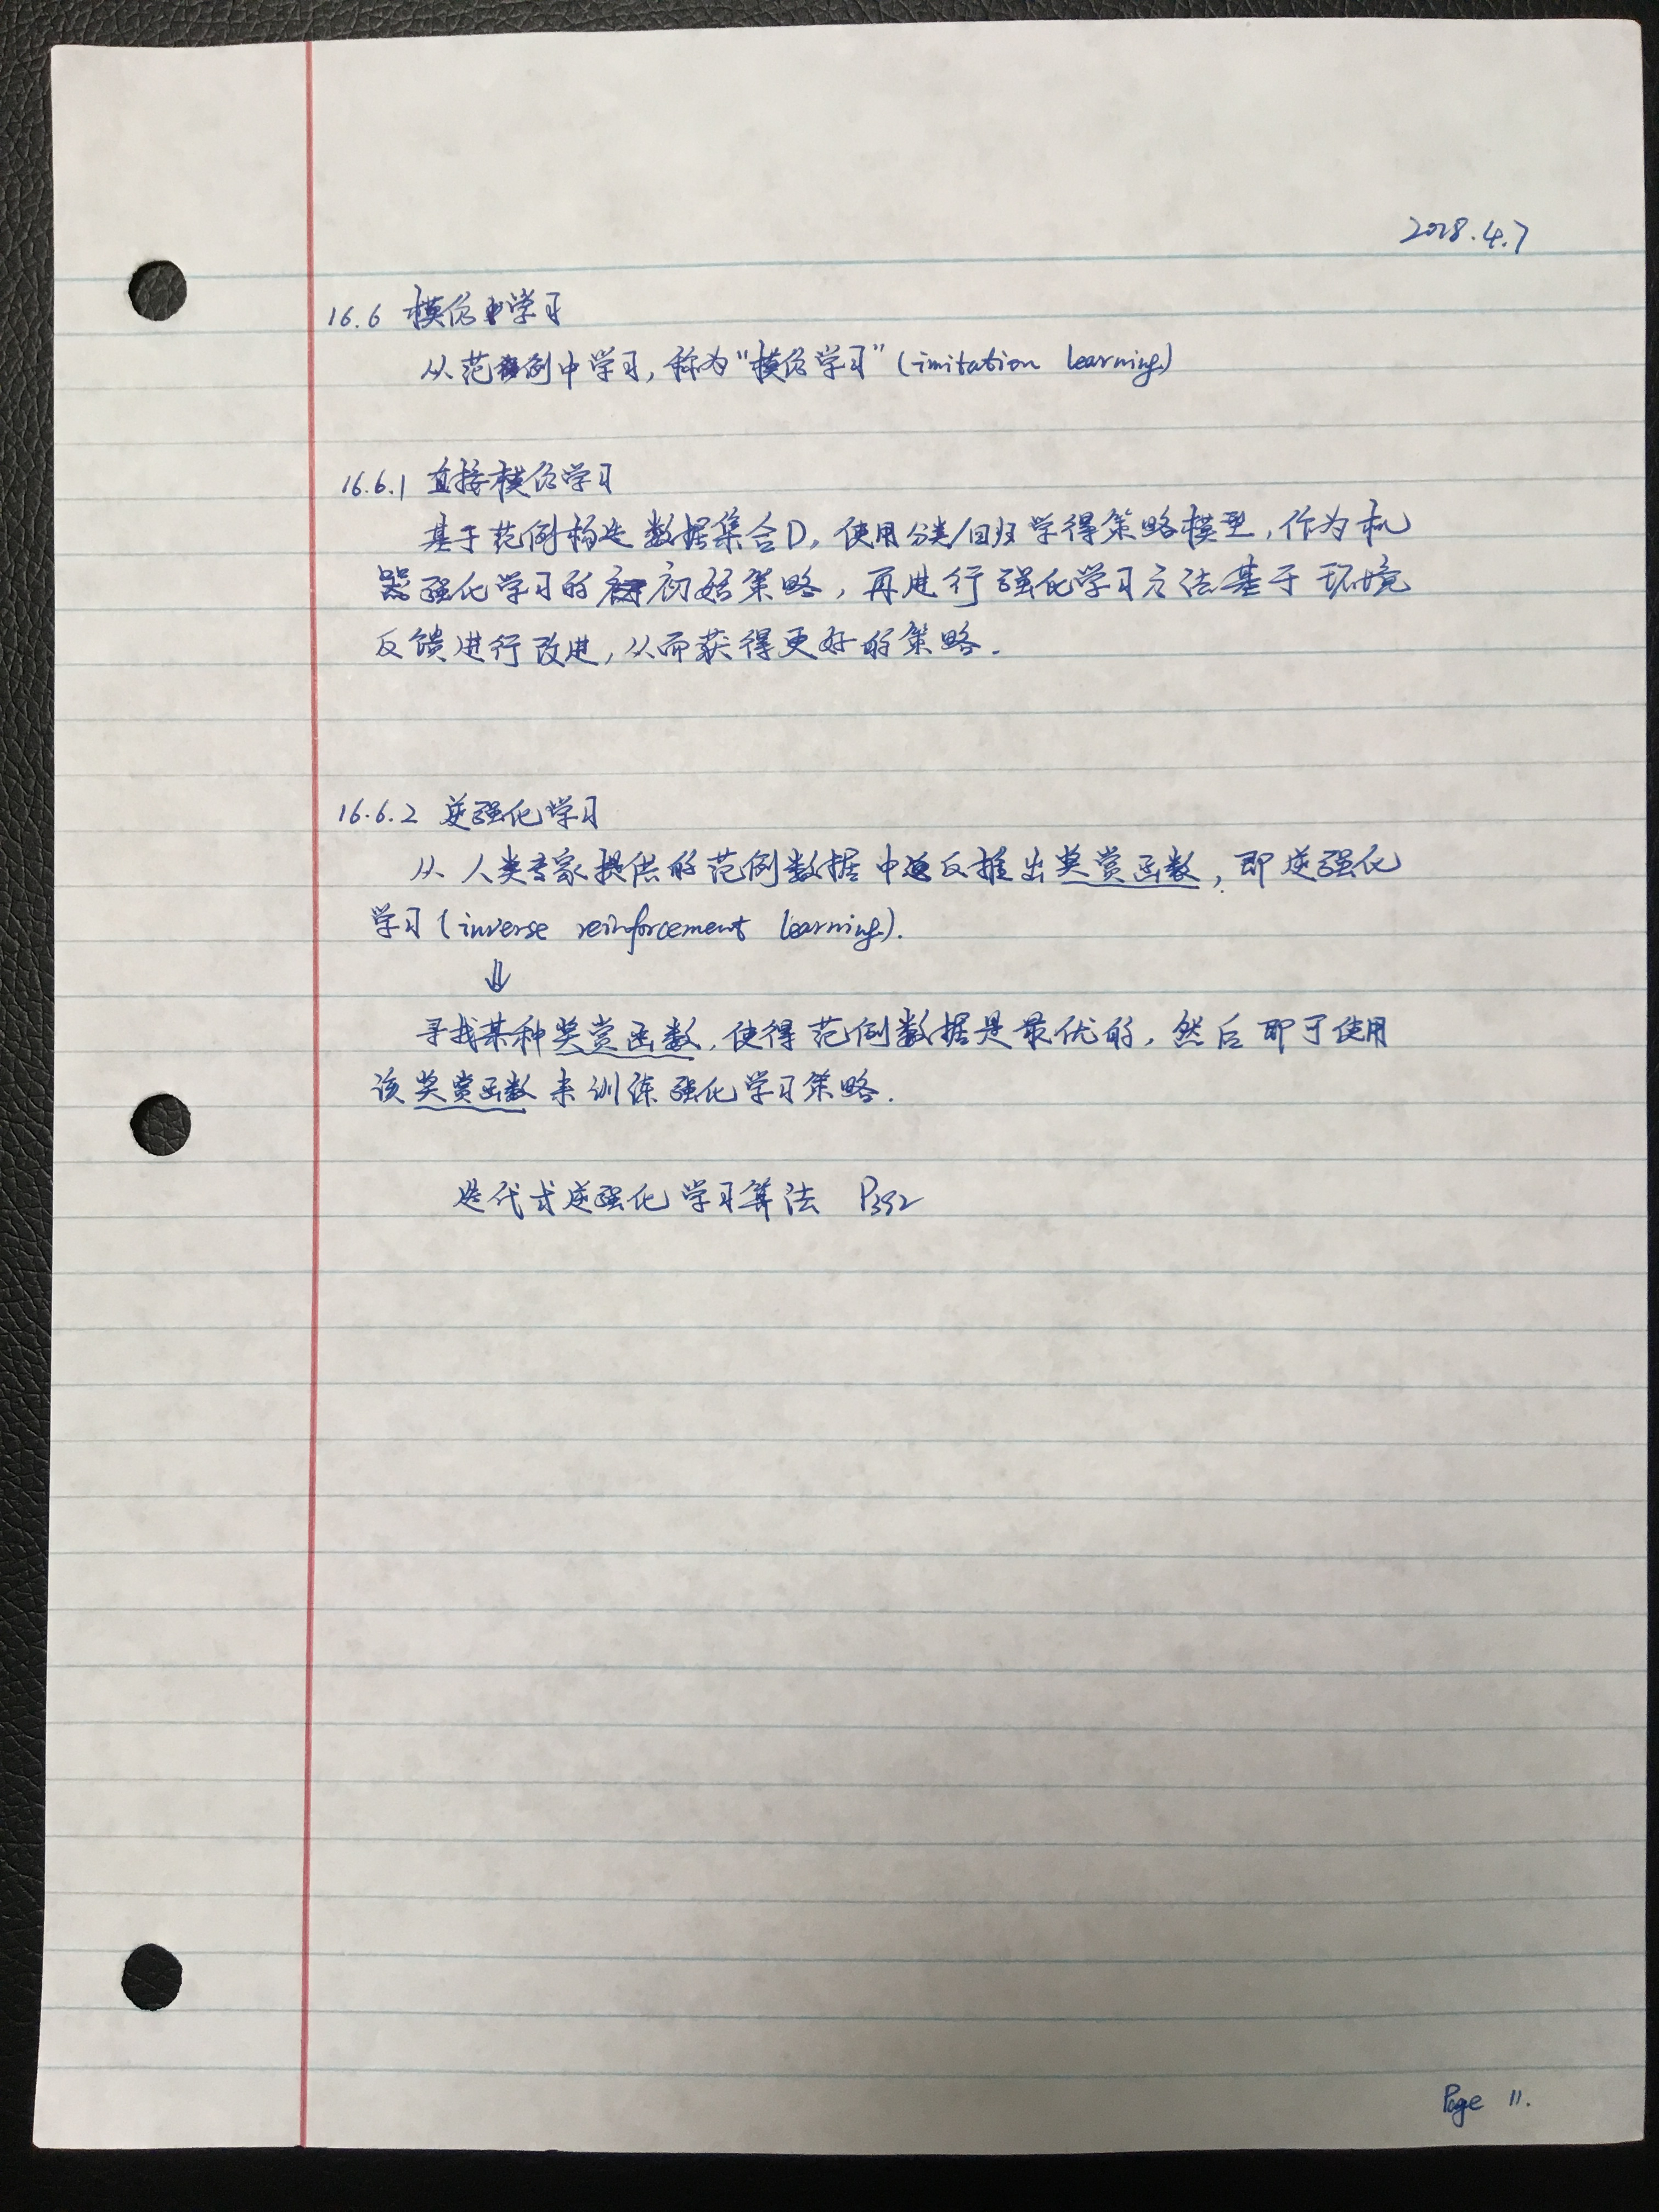 2018.4.7
16.6 模仿学习
从范例中学习,称为"模仿学习"(imitation learning)
16.6.1 直接模仿学习
基于范例构造数据集合D,使用分类/回归学得策略模型,作为机
器强化学习的初始策略,再进行强化学习方法基于环境
反馈进行改进,从而获得更好的策略.
16.6.2 逆强化学习
从人类专家提供的范例数据中反推出奖赏函数,即逆强化
学习(inverse reinforcement learning).
⇓
寻找某种奖赏函数,使得范例数据是最优的,然后即可使用
该奖赏函数来训练强化学习策略.
迭代式逆强化学习算法 P392
Page 11.